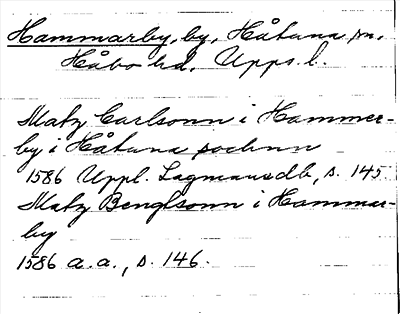 Hammarby, by, Håtuna sn,
Håbo hd, Upps. l.
Matz Carlsonn i Hammer-
by i Håtuna sochnn
1586 Uppl. Lagmansdb, s. 145
Matz Bengtsonn i Hammar-
by
1586 a.a., s. 146.